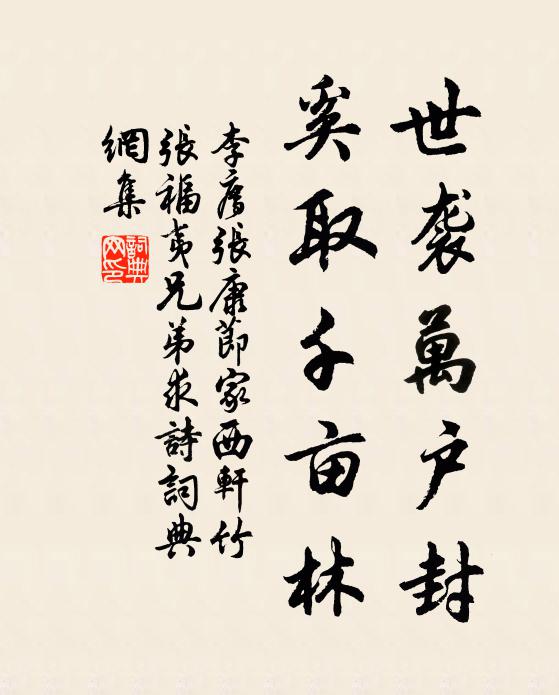 世袭萬户封
奚取千亩林
李廌張康節家西軒竹
張福夷兄弟求詩詞典
網集
詞典網印